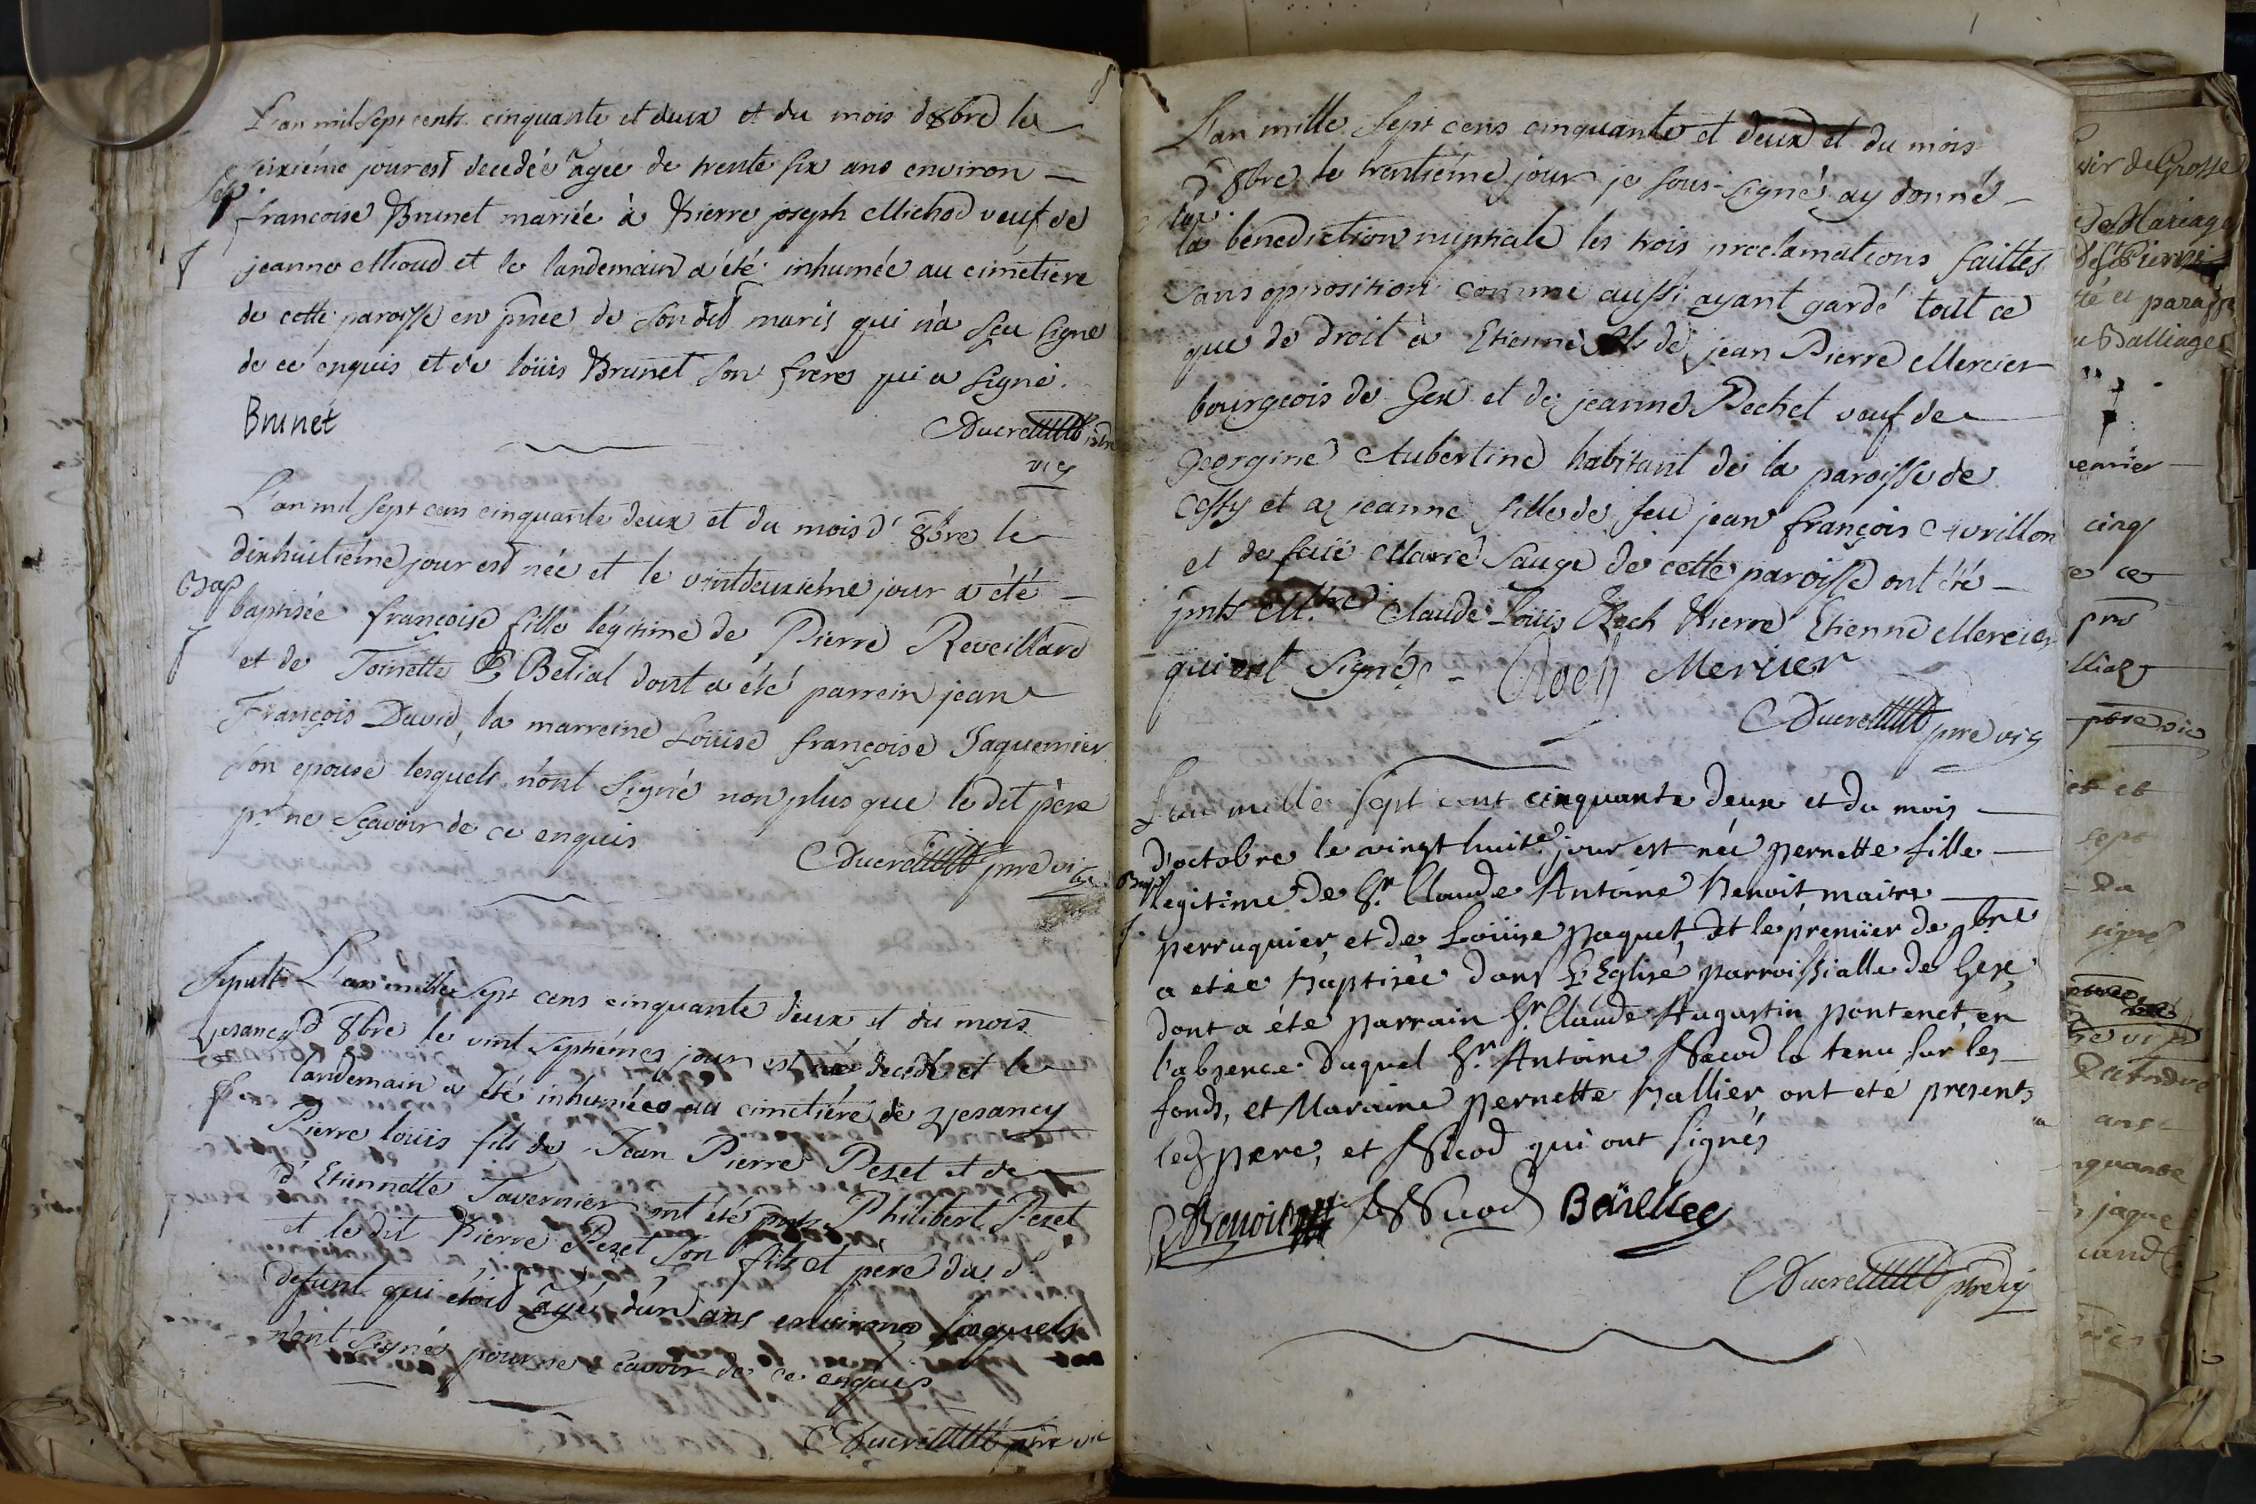 L'an mil sept cents cinquante et deux et du mois d8bre le
seixiéme jour est decedée agée de trente six ans environ
Sep.
francoise Brunet mariée à Pierre joseph Michod veuf de
jeanne Mioud et le landemain a été inhumée au cimetiere
de cette paroisse en pnce de son dit maris qui n'a sçu signe
de ce enquis et de loüis Brunet son frere qui a signé.
Brunet
Ducret
vic
L'an mil sept cens cinquante deux et du mois d'8bre le
dixhuitiéme jour est née et le vintdeuxiéme jour a été
Bap
baptisée françoise fille légitime de Pierre Reveillard
et de Toinette Belial dont a été parrein jean
François David, la marreine Loüise françoise Jaquemier
son epouse lesquels n'ont signé non plus que le dit père
pr ne sçavoir de ce enquis
Ducret pre vic
Sepult L'an mille sept cens cinquante deux et du mois
Vesancy d'8bre le vint septiémes jour est decedé et le
landemain a été inhumée au cimetiére de Vesancy
Pierre loüis fils de Jean Pierre Pezet et de
d'Etiennette Tavernier ont été pnts Philibert Pezet
et le dit Pierre Pezet son fils et père du d.
defunt qui étoit âgé d'un ans environ lesquels
n'ont signés pour ne scavoir de ce enquis
Ducret pre vic
L'an mille sept cens cinquante et deux et du mois
d'8bre le trentiéme jour je sous-signé ay donné
la benediction nuptiale les trois proclamations faittes
sans opposition comme aussi ayant gardé tout ce
que de droit à Etienne fils de jean Pierre Mercier
bourgeois de Gex et de jeanne Pechet veuf de
Georgine Aubertine habitant de la paroisse de
Cessy et a jeanne fille de feu jean françois Avrillon
et de fuë Marie Sauge de cette paroisse ont été
pnts Claude Loüis Roch Pierre Etienne Mercier
qui ont signés Roch Mercier
Ducret pre vic
L'an mille sept cent cinquante deux et du mois
d'octobre le vingt huite jour est née pernette fille
Bap
legitime de Sr. Claude Antoine Benoit maitre
perruquier et de Loüise paquet, et le premier de 9bre
a etée baptisée dans L'Eglise parroissialle de Gex,
dont a été parrain Sr. Claude Augustin pontenet, en
l'absence duquel Sr. Antoine Nicod la tenu sur les
fonds, et Maraine pernette ballier ont eté presents
led pere, et Nicod qui ont signés
Benoit Nicod
Ducret